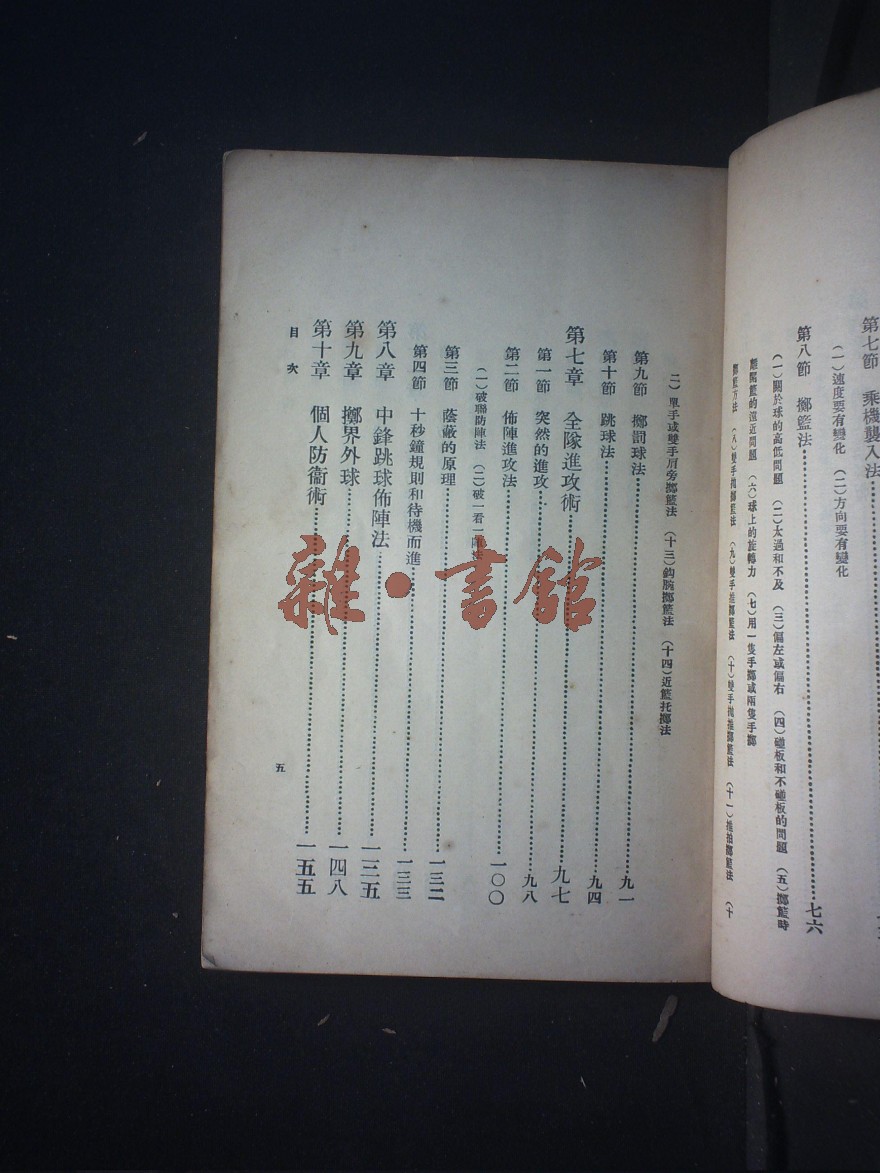 第七節 乘機襲入法
(一)速度要有變化 (二)方向要有變化
第八節 擲籃法……七六
(一)關於球的高低問題 (二)太過和不及 (三)偏左或偏右 (四)碰板和不碰板的問題 (五)擲籃時
離開籃的遠近問題 (六)球上的旋轉力 (七)用一隻手擲或兩隻手擲
擲籃方法 (八)雙手拋擲籃法 (九)雙手推擲籃法 (十)雙手拋推擲籃法 (十一)推拍擲籃法 (十
二)單手或雙手肩旁擲籃法 (十三)鈎腕擲籃法 (十四)近籃托擲法
第九節 擲罰球法……九一
第十節 跳球法……九四
第七章 全隊進攻術……九七
第一節 突然的進攻……九八
第二節 佈陣進攻法……一〇〇
(一)破聯防陣法 (二)破一看一陣法
第三節 蔭蔽的原理……一三二
第四節 十秒鐘規則和待機而進……一三三
第八章 中鋒跳球佈陣法……一三五
第九章 擲界外球……一四八
第十章 個人防衞術……一五五
目次
五
雜·書館